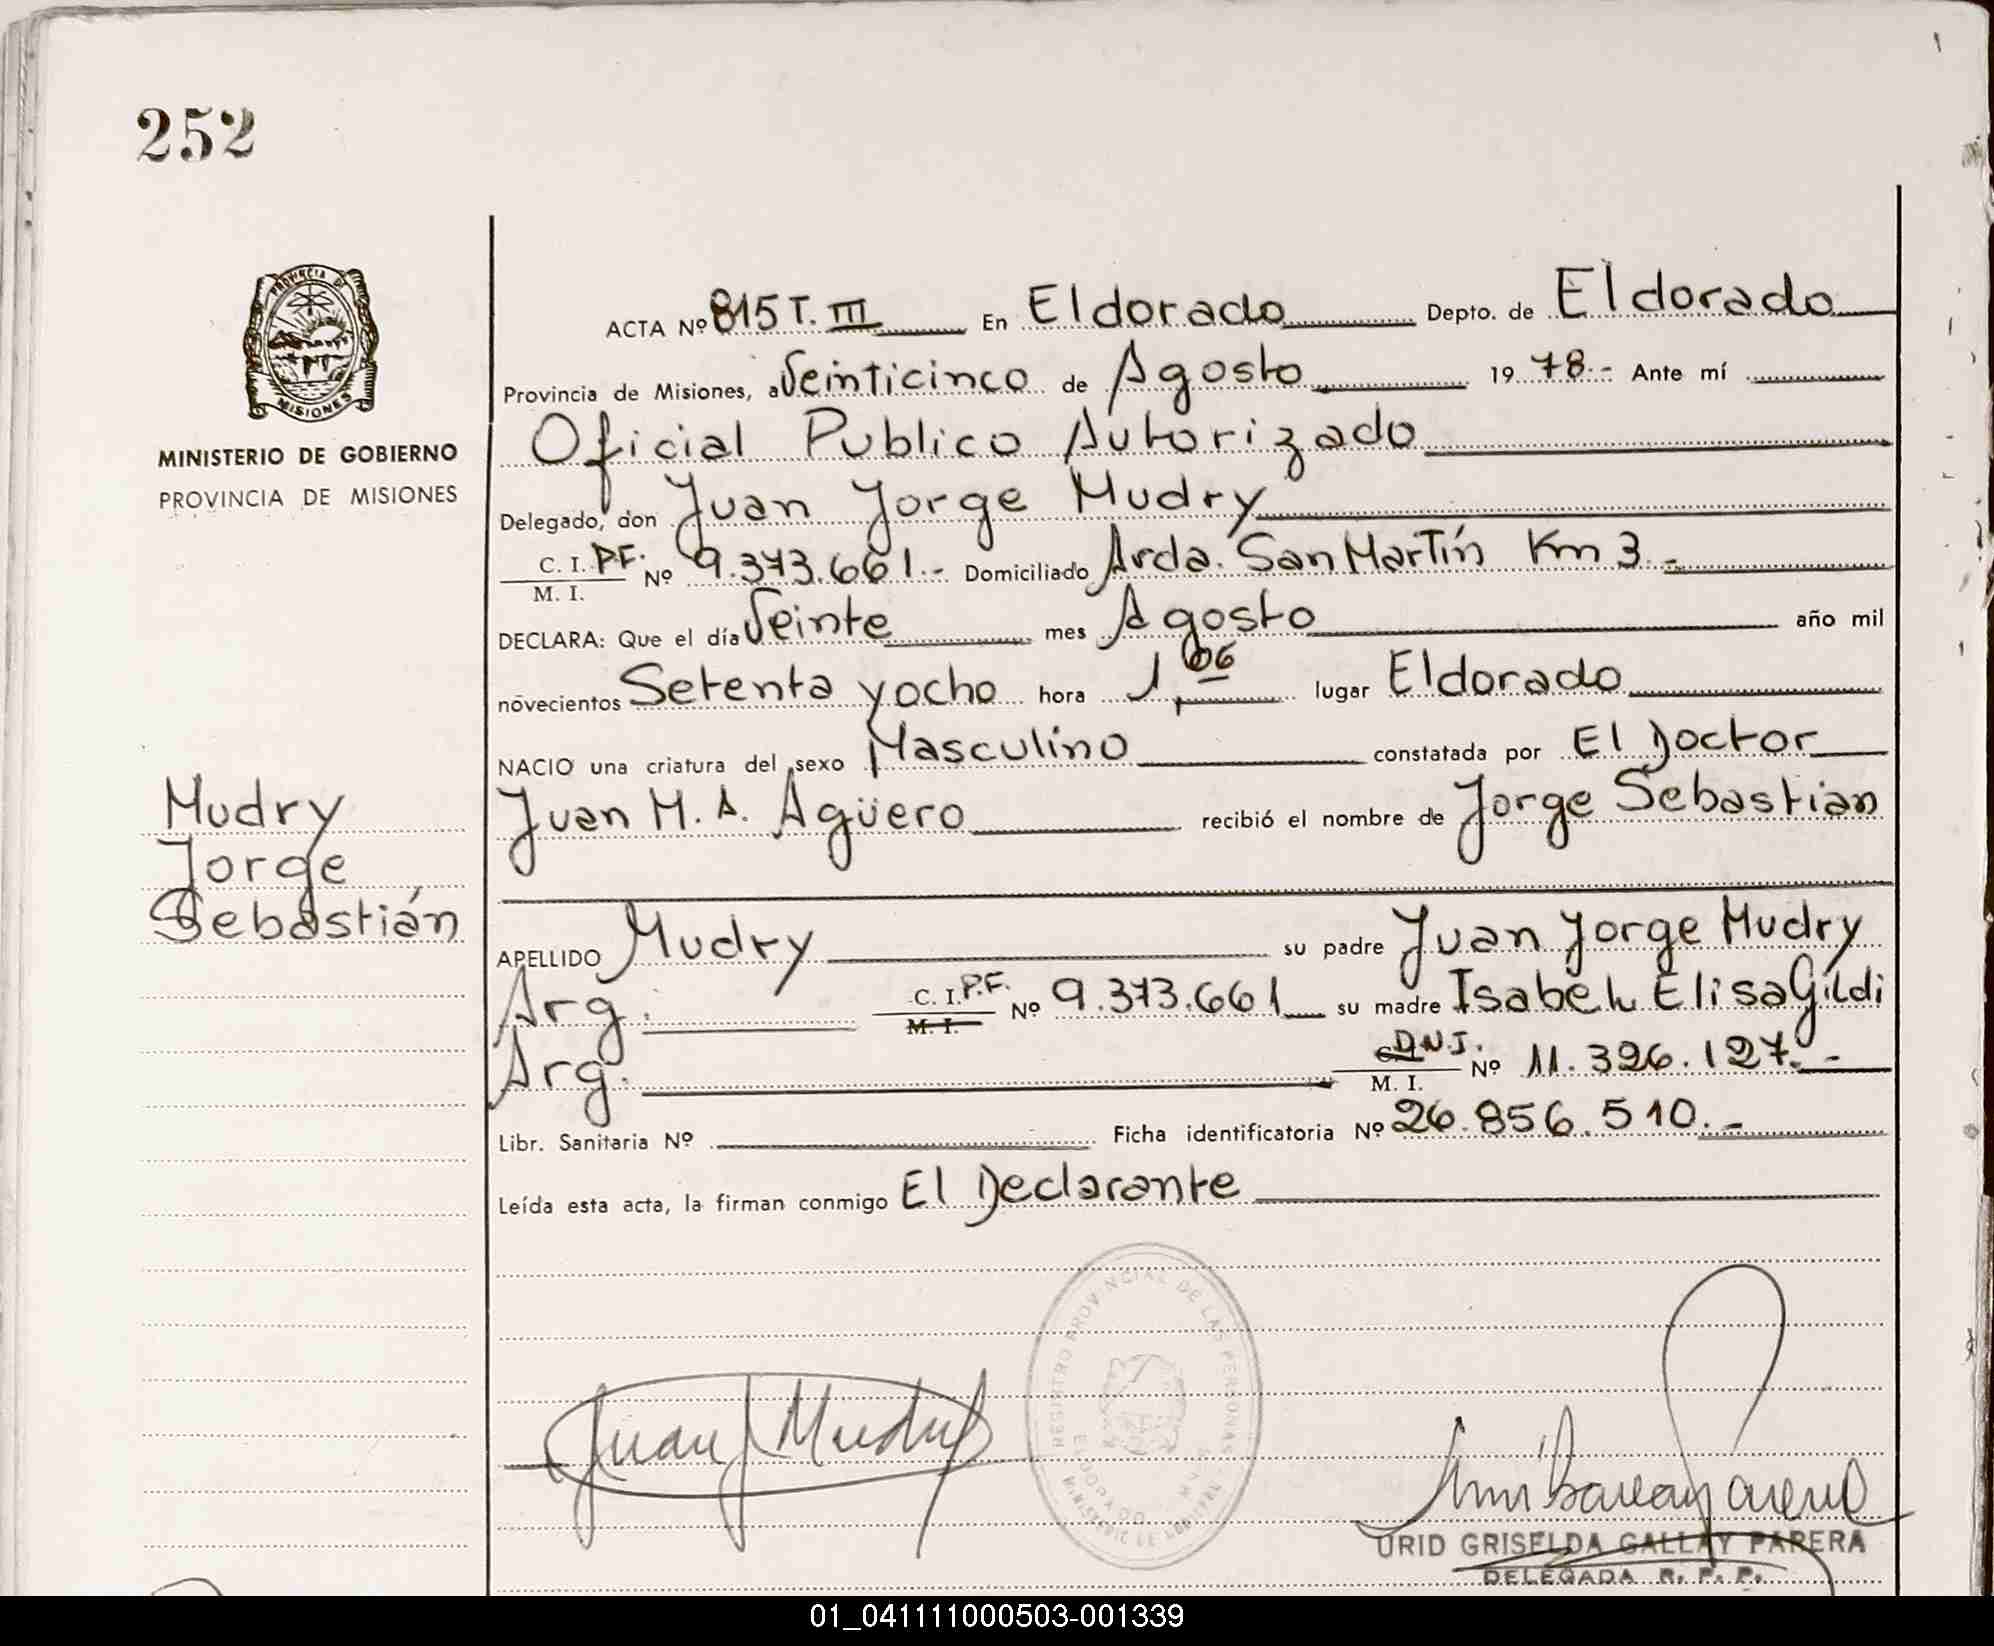 252
PROVINCIA DE
MISIONES
MINISTERIO DE GOBIERNO
PROVINCIA DE MISIONES
Mudry
Jorge
Sebastián
ACTA Nº 815 T. III En Eldorado Depto. de Eldorado
Provincia de Misiones, a Veinticinco de Agosto 19 78.- Ante mí
Oficial Publico Autorizado
Delegado, don Juan Jorge Mudry
C. I. P.F. Nº 9.373.661.- Domiciliado Avda. San Martín Km 3.-
M. I.
DECLARA: Que el día Veinte mes Agosto año mil
novecientos Setenta y ocho hora 1,06 lugar Eldorado
NACIO una criatura del sexo Masculino constatada por El Doctor
Juan M. A. Agüero recibió el nombre de Jorge Sebastian
APELLIDO Mudry su padre Juan Jorge Mudry
Arg. C. I. P.F. Nº 9.373.661 su madre Isabel Elisa Gildi
M. I.
Arg. D.N.I. Nº 11.326.127.-
M. I.
Libr. Sanitaria Nº Ficha identificatoria Nº 26.856.510.-
Leída esta acta, la firman conmigo El Declarante
REGISTRO PROVINCIAL DE LAS PERSONAS
ELDORADO
Juan J Mudry
URID GRISELDA GALLAY PARERA
DELEGADA R. P. P.
01_041111000503-001339